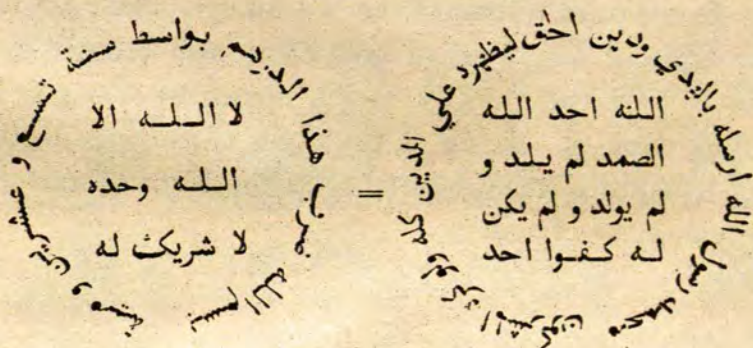 الله احد الله
الصمد لم يلد و
لم يولد و لم يكن
له كفوا احد
محمد رسول الله ارسله بالهدي ودين الحق ليظهره علي الدين كله ولو كره المشركون
=
لا اللـه الا
اللـه وحده
لا شريك له
بسم الله ضرب هذا الدرهم بواسط سنة تسع و عشرين و مية